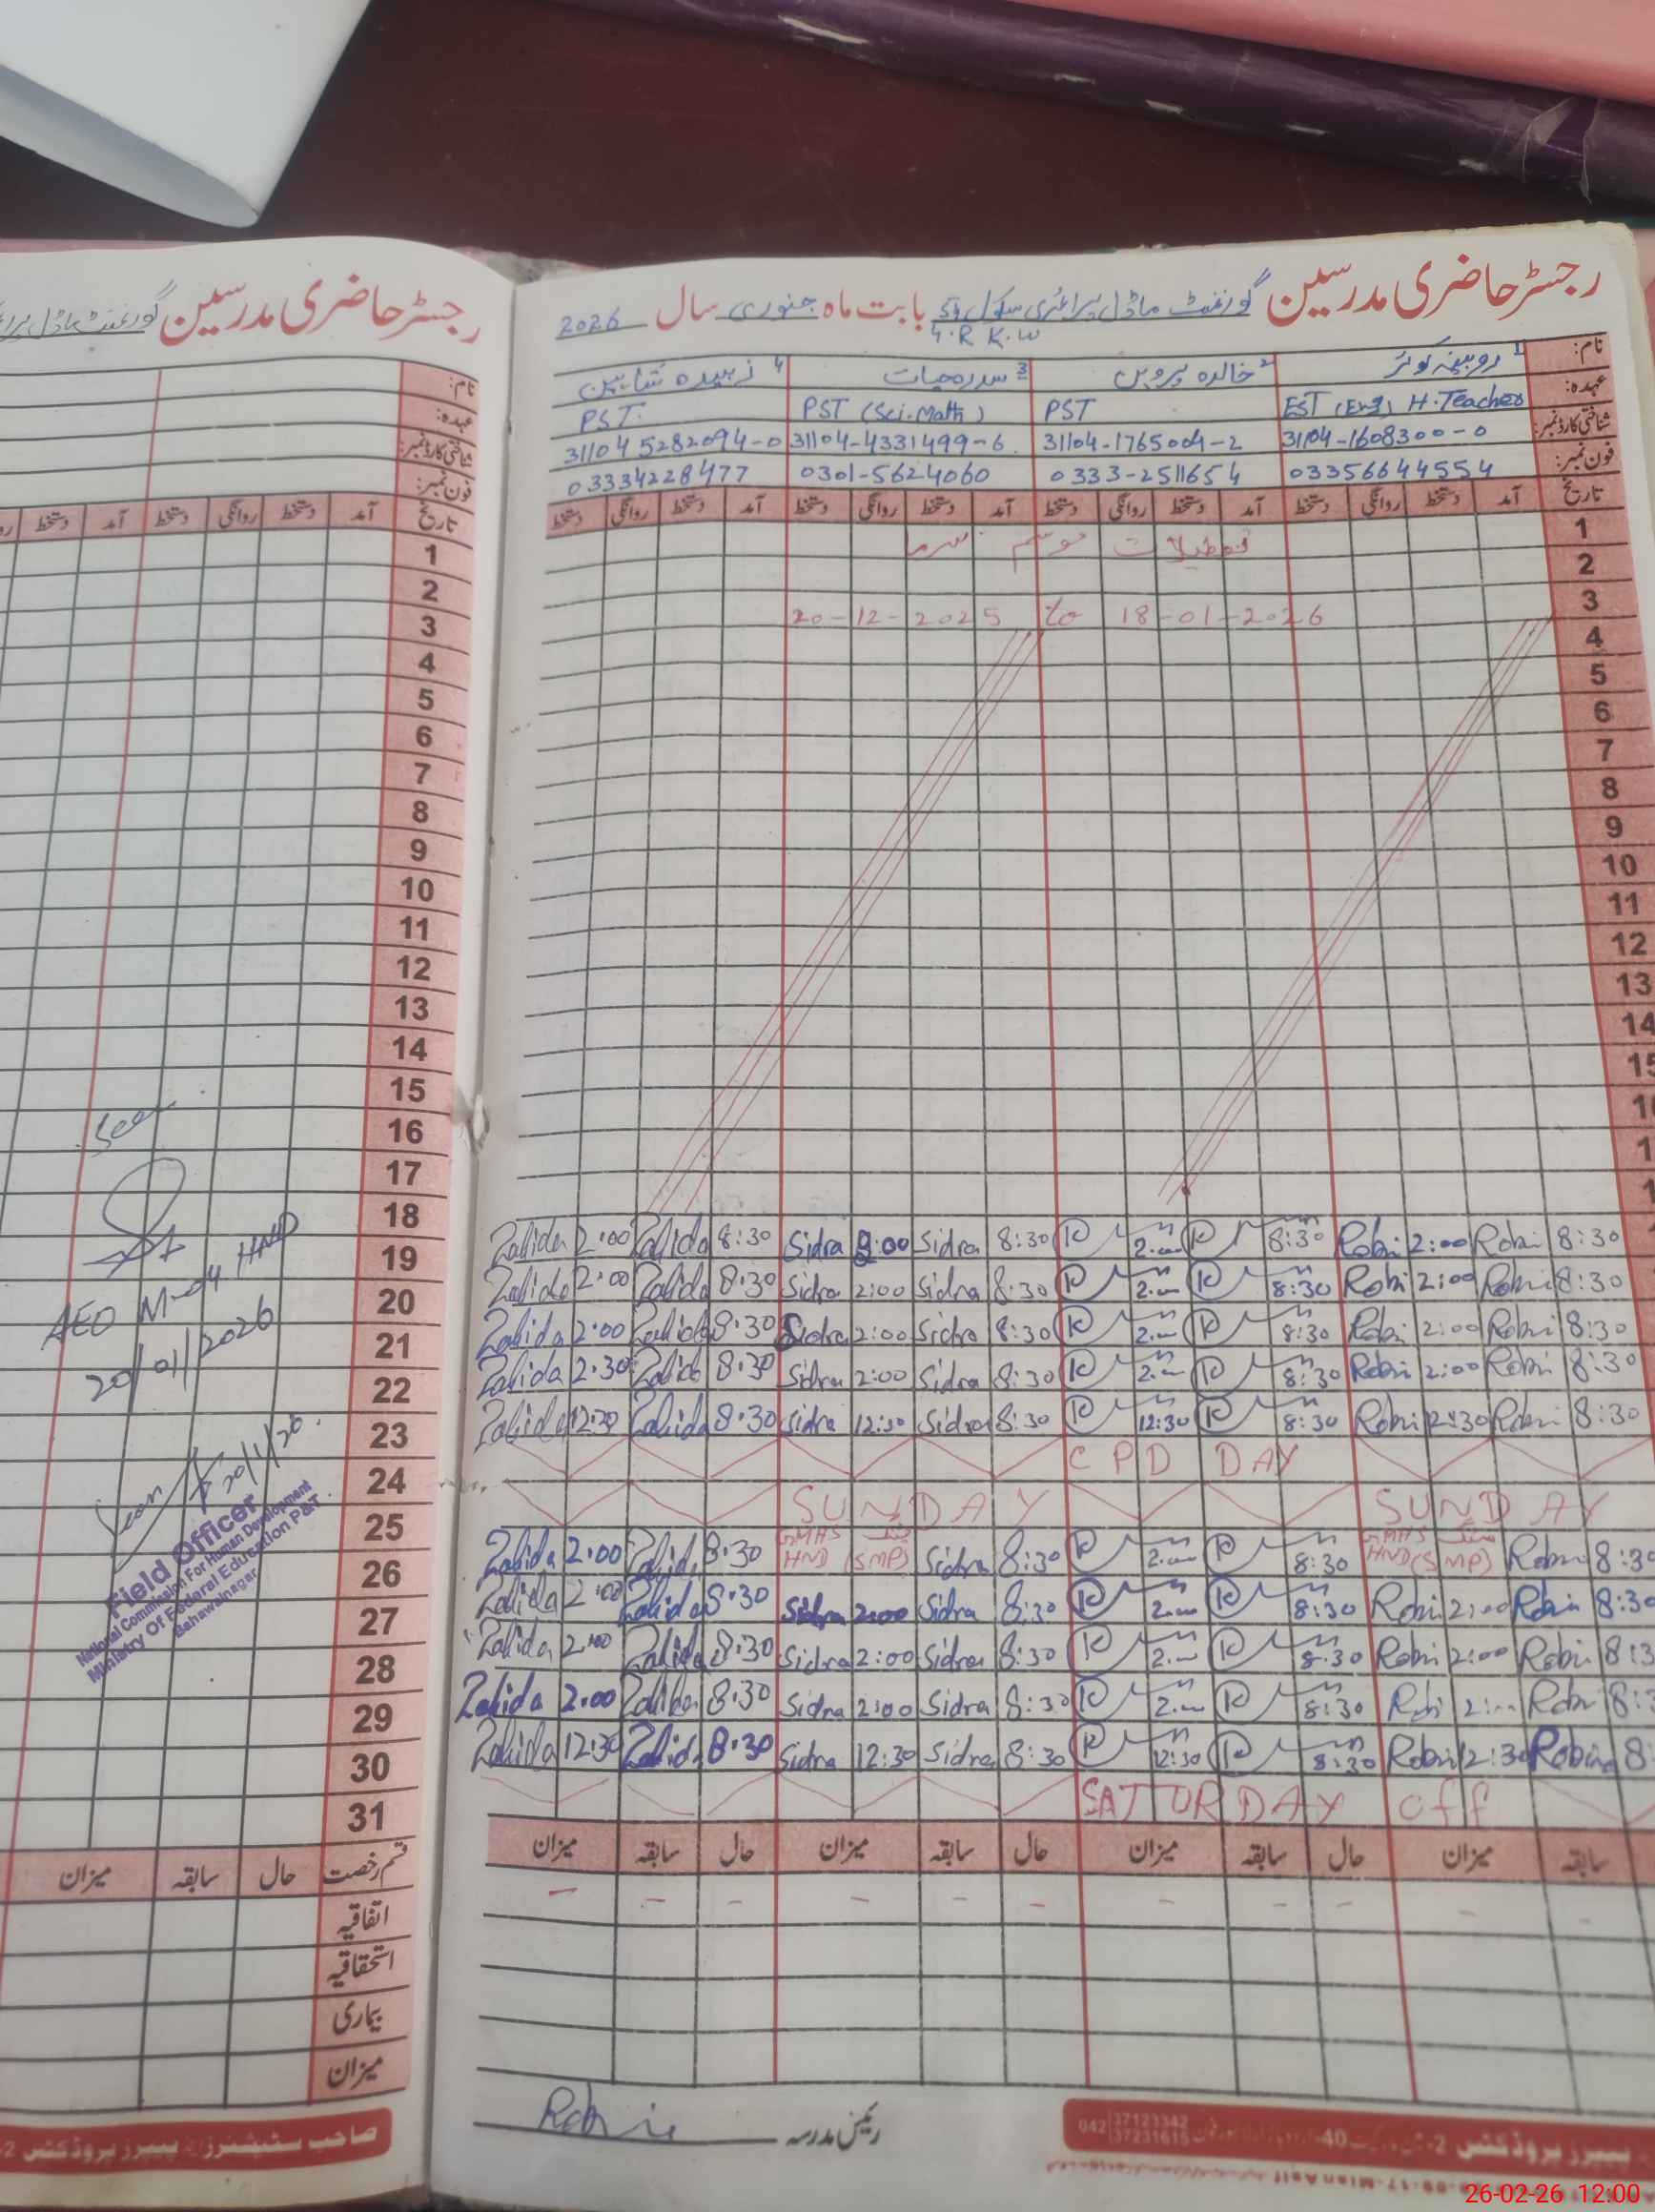 رجسٹر حاضری مدرسین گورنمنٹ ماڈل پرائمری سکول بابت ماہ جنوری سال 2026
4.R K.W
نام: 1 روبینہ کوثر 2 خالدہ پروین 3 سدرہ حیات 4 زبیدہ شاہین
عہدہ: EST (Eng) H.Teacher PST PST (Sci.Math) PST.
شناختی کارڈ نمبر: 31104-1608300-0 31104-1765004-2 31104-4331499-6 31104 5282094-0
فون نمبر: 03356644554 0333-2511654 0301-5624060 03334228477
تاریخ آمد دستخط روانگی دستخط آمد دستخط روانگی دستخط آمد دستخط روانگی دستخط آمد دستخط روانگی دستخط
1 تعطیلات موسم سرما
2
3 20-12-2025 to 18-01-2026
4
5
6
7
8
9
10
11
12
13
14
15
Zahida 2:00 Zahida 8:30 Sidra 2:00 Sidra 8:30 2:00 8:30 Robi 2:00 Robi 8:30
Zahida 2:00 Zahida 8:30 Sidra 2:00 Sidra 8:30 2:00 8:30 Robi 2:00 Robi 8:30
Zahida 2:00 Zahida 8:30 Sidra 2:00 Sidra 8:30 2:00 8:30 Robi 2:00 Robi 8:30
Zahida 2:30 Zahida 8:30 Sidra 2:00 Sidra 8:30 2:00 8:30 Robi 2:00 Robi 8:30
Zahida 12:30 Zahida 8:30 Sidra 12:30 Sidra 8:30 12:30 8:30 Robi 12:30 Robi 8:30
CPD DAY
SUNDAY SUNDAY
Zahida 2:00 Zahida 8:30 GMHS میٹنگ HND (SMP) Sidra 8:30 2:00 8:30 GMHS میٹنگ HND (SMP) Robi 8:30
Zahida 2:00 Zahida 8:30 Sidra 2:00 Sidra 8:30 2:00 8:30 Robi 2:00 Robi 8:30
Zahida 2:00 Zahida 8:30 Sidra 2:00 Sidra 8:30 2:00 8:30 Robi 2:00 Robi 8:3
Zahida 2:00 Zahida 8:30 Sidra 2:00 Sidra 8:30 2:00 8:30 Robi 2:00 Robi 8:3
Zahida 12:30 Zahida 8:30 Sidra 12:30 Sidra 8:30 12:30 8:30 Robi 12:30 Robina 8:
SATTURDAY off
سابقہ میزان حال سابقہ میزان حال سابقہ میزان حال سابقہ میزان
رئیس مدرسہ
042 37123342
37231615
پیپرز پروڈکٹس
رجسٹر حاضری مدرسین گورنمنٹ ماڈل
نام:
عہدہ:
شناختی کارڈ نمبر:
فون نمبر:
تاریخ آمد دستخط روانگی دستخط آمد دستخط
1
2
3
4
5
6
7
8
9
10
11
12
13
14
15
16
17
18
19
20
21
22
23
24
25
26
27
28
29
30
31
Seen
AEO M-04 HND
20/01/2026
Seen
20/1/26.
Field Officer
National Commission For Human Development
Ministry Of Federal Education P&T
Bahawalnagar
قسم رخصت حال سابقہ میزان
اتفاقیہ
استحقاقیہ
بیماری
میزان
صاحب سٹیشنرز اینڈ پیپرز پروڈکٹس
26-02-26 12:00